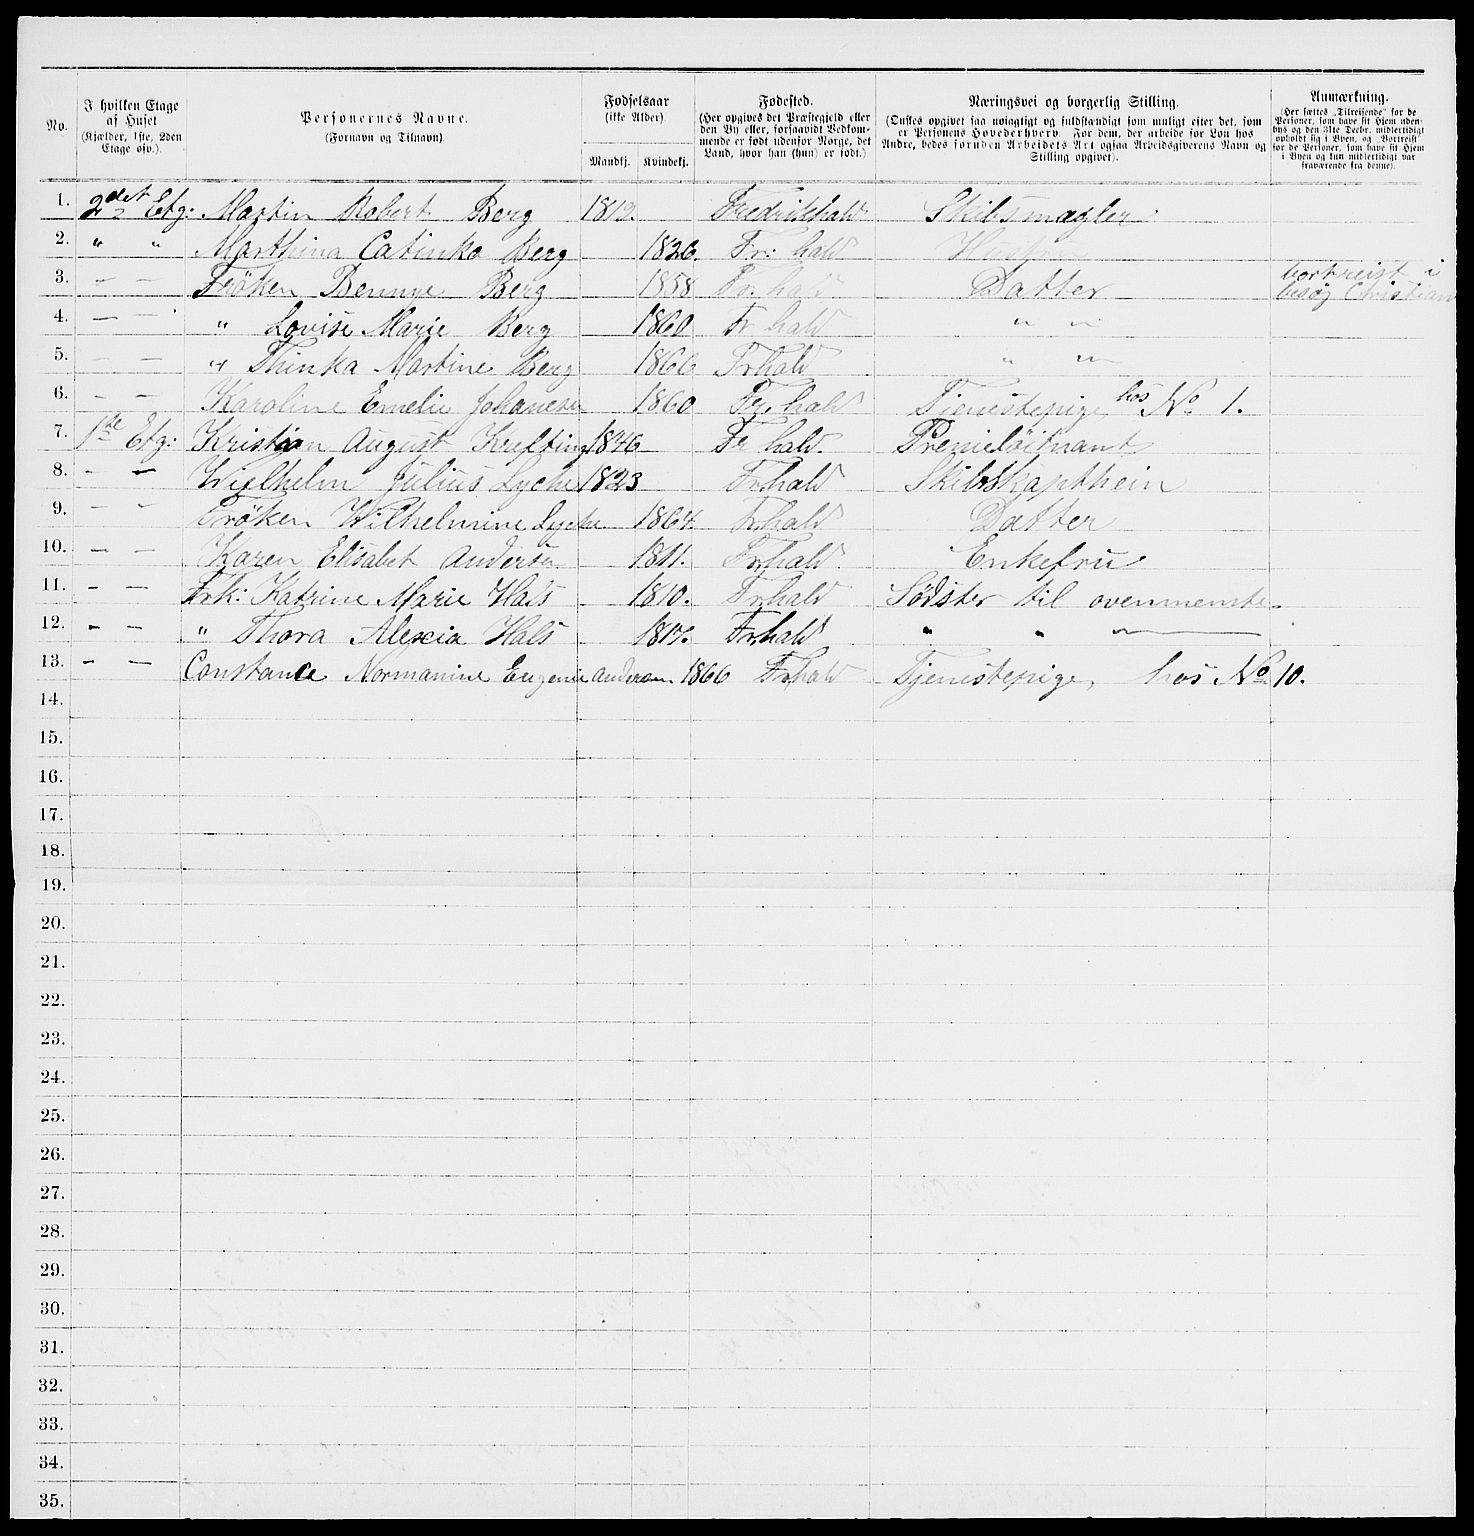 No. I hvilken Etage af Huset (Kjælder, 1ste, 2den Etage osv.). Personernes Navne. (Fornavn og Tilnavn). Fødselsaar (ikke Alder). Mandkj. Kvindekj. Fødested. (Her opgives det Præstegjeld eller den By eller, forsaavidt Vedkommende er født udenfor Norge, det Land, hvor han (hun) er født.) Næringsvei og borgerlig Stilling. (Ønskes opgivet saa nøiagtigt og fuldstændigt som muligt efter det, som er Personens Hovederhverv. For dem, der arbeide for Løn hos Andre, bedes foruden Arbeidets Art ogsaa Arbeidsgiverens Navn og Stilling opgivet). Anmærkning. (Her sættes „Tilreisende“ for de Personer, som have sit Hjem udenbys og den 31te Decbr. midlertidigt opholdt sig i Byen, og „Bortreist“ for de Personer, som have sit Hjem i Byen og kun midlertidigt var fraværende fra denne).
1. 2det Etg: Martin Robert Berg Fredrikshald Skibsmægler
2. " " Marthina Catinka Berg 1826. Fr: hald Hustru
3. — — Frøken Bennye Berg 1858 Fr. hald Datter bortreist i besøg Christian
4. — — " Lovise Marie Berg 1860 Fr hald " "
5. — — " Thinka Martine Berg 1866 Frhald " "
6. — — Karoline Emelie Johanesen 1860 Fr. hald Tjenestepige hos No 1.
7. 1ste Etg: Kristian August Krefting 1846 Fr hald. Premieløitnant
8. — — Wielhelm Julius Lyche 1823 Frhald Skibskapthein
9. — — Frøken Wilhelmine Lyche 1864. Frhald Datter
10. — — Karen Elisabet Andersen 1811. Frhald. Enkefru
11. — — Frk: Katrine Marie Hals 1810. Frhald Sødster til ovenmenste.
12. — — " Thora Alexia Hals Frhald " " —
13. — — Constance Normanine Eugenie Andersen 1866 Frhald Tjenestepige, hos No 10.
14.
15.
16.
17.
18.
19.
20.
21.
22.
23.
24.
25.
26.
27.
28.
29.
30.
31.
32.
33.
34.
35.